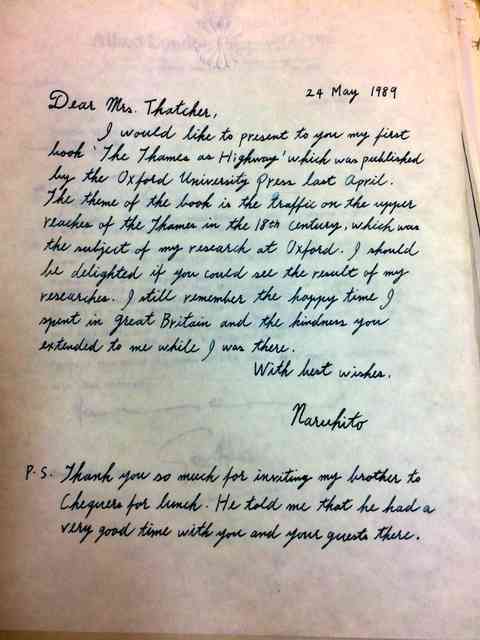 24 May 1989
Dear Mrs. Thatcher,
I would like to present to you my first
book 'The Thames as Highway' which was published
by the Oxford University Press last April.
The theme of the book is the traffic on the upper
reaches of the Thames in the 18th century, which was
the subject of my research at Oxford. I should
be delighted if you could see the result of my
researches. I still remember the happy time I
spent in Great Britain and the kindness you
extended to me while I was there.
With best wishes.
Naruhito
P.S. Thank you so much for inviting my brother to
Chequers for lunch. He told me that he had a
very good time with you and your guests there.